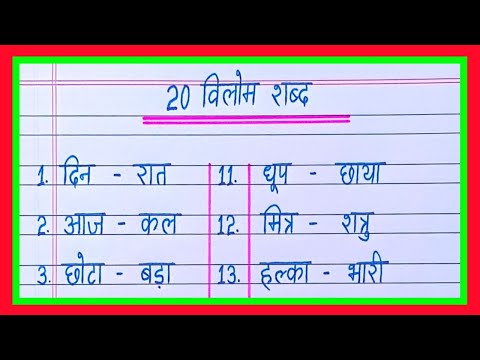 20 विलोम शब्द
1. दिन - रात
2. आज - कल
3. छोटा - बड़ा
11. धूप - छाया
12. मित्र - शत्रु
13. हल्का - भारी